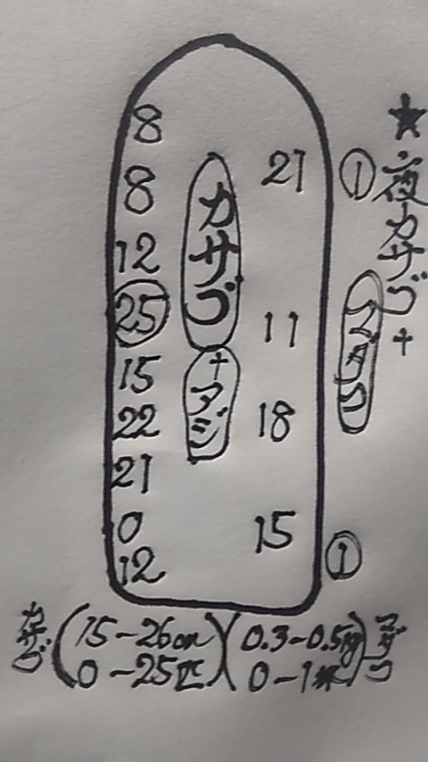 ★夜カサゴ+
マダコ
カサゴ
+アジ
8
8
12
25
15
22
21
0
12
21 ①
11
18
15 ①
カサゴ(15-26cm)(0.3-0.5kg)マダコ
0-25匹 0-1杯